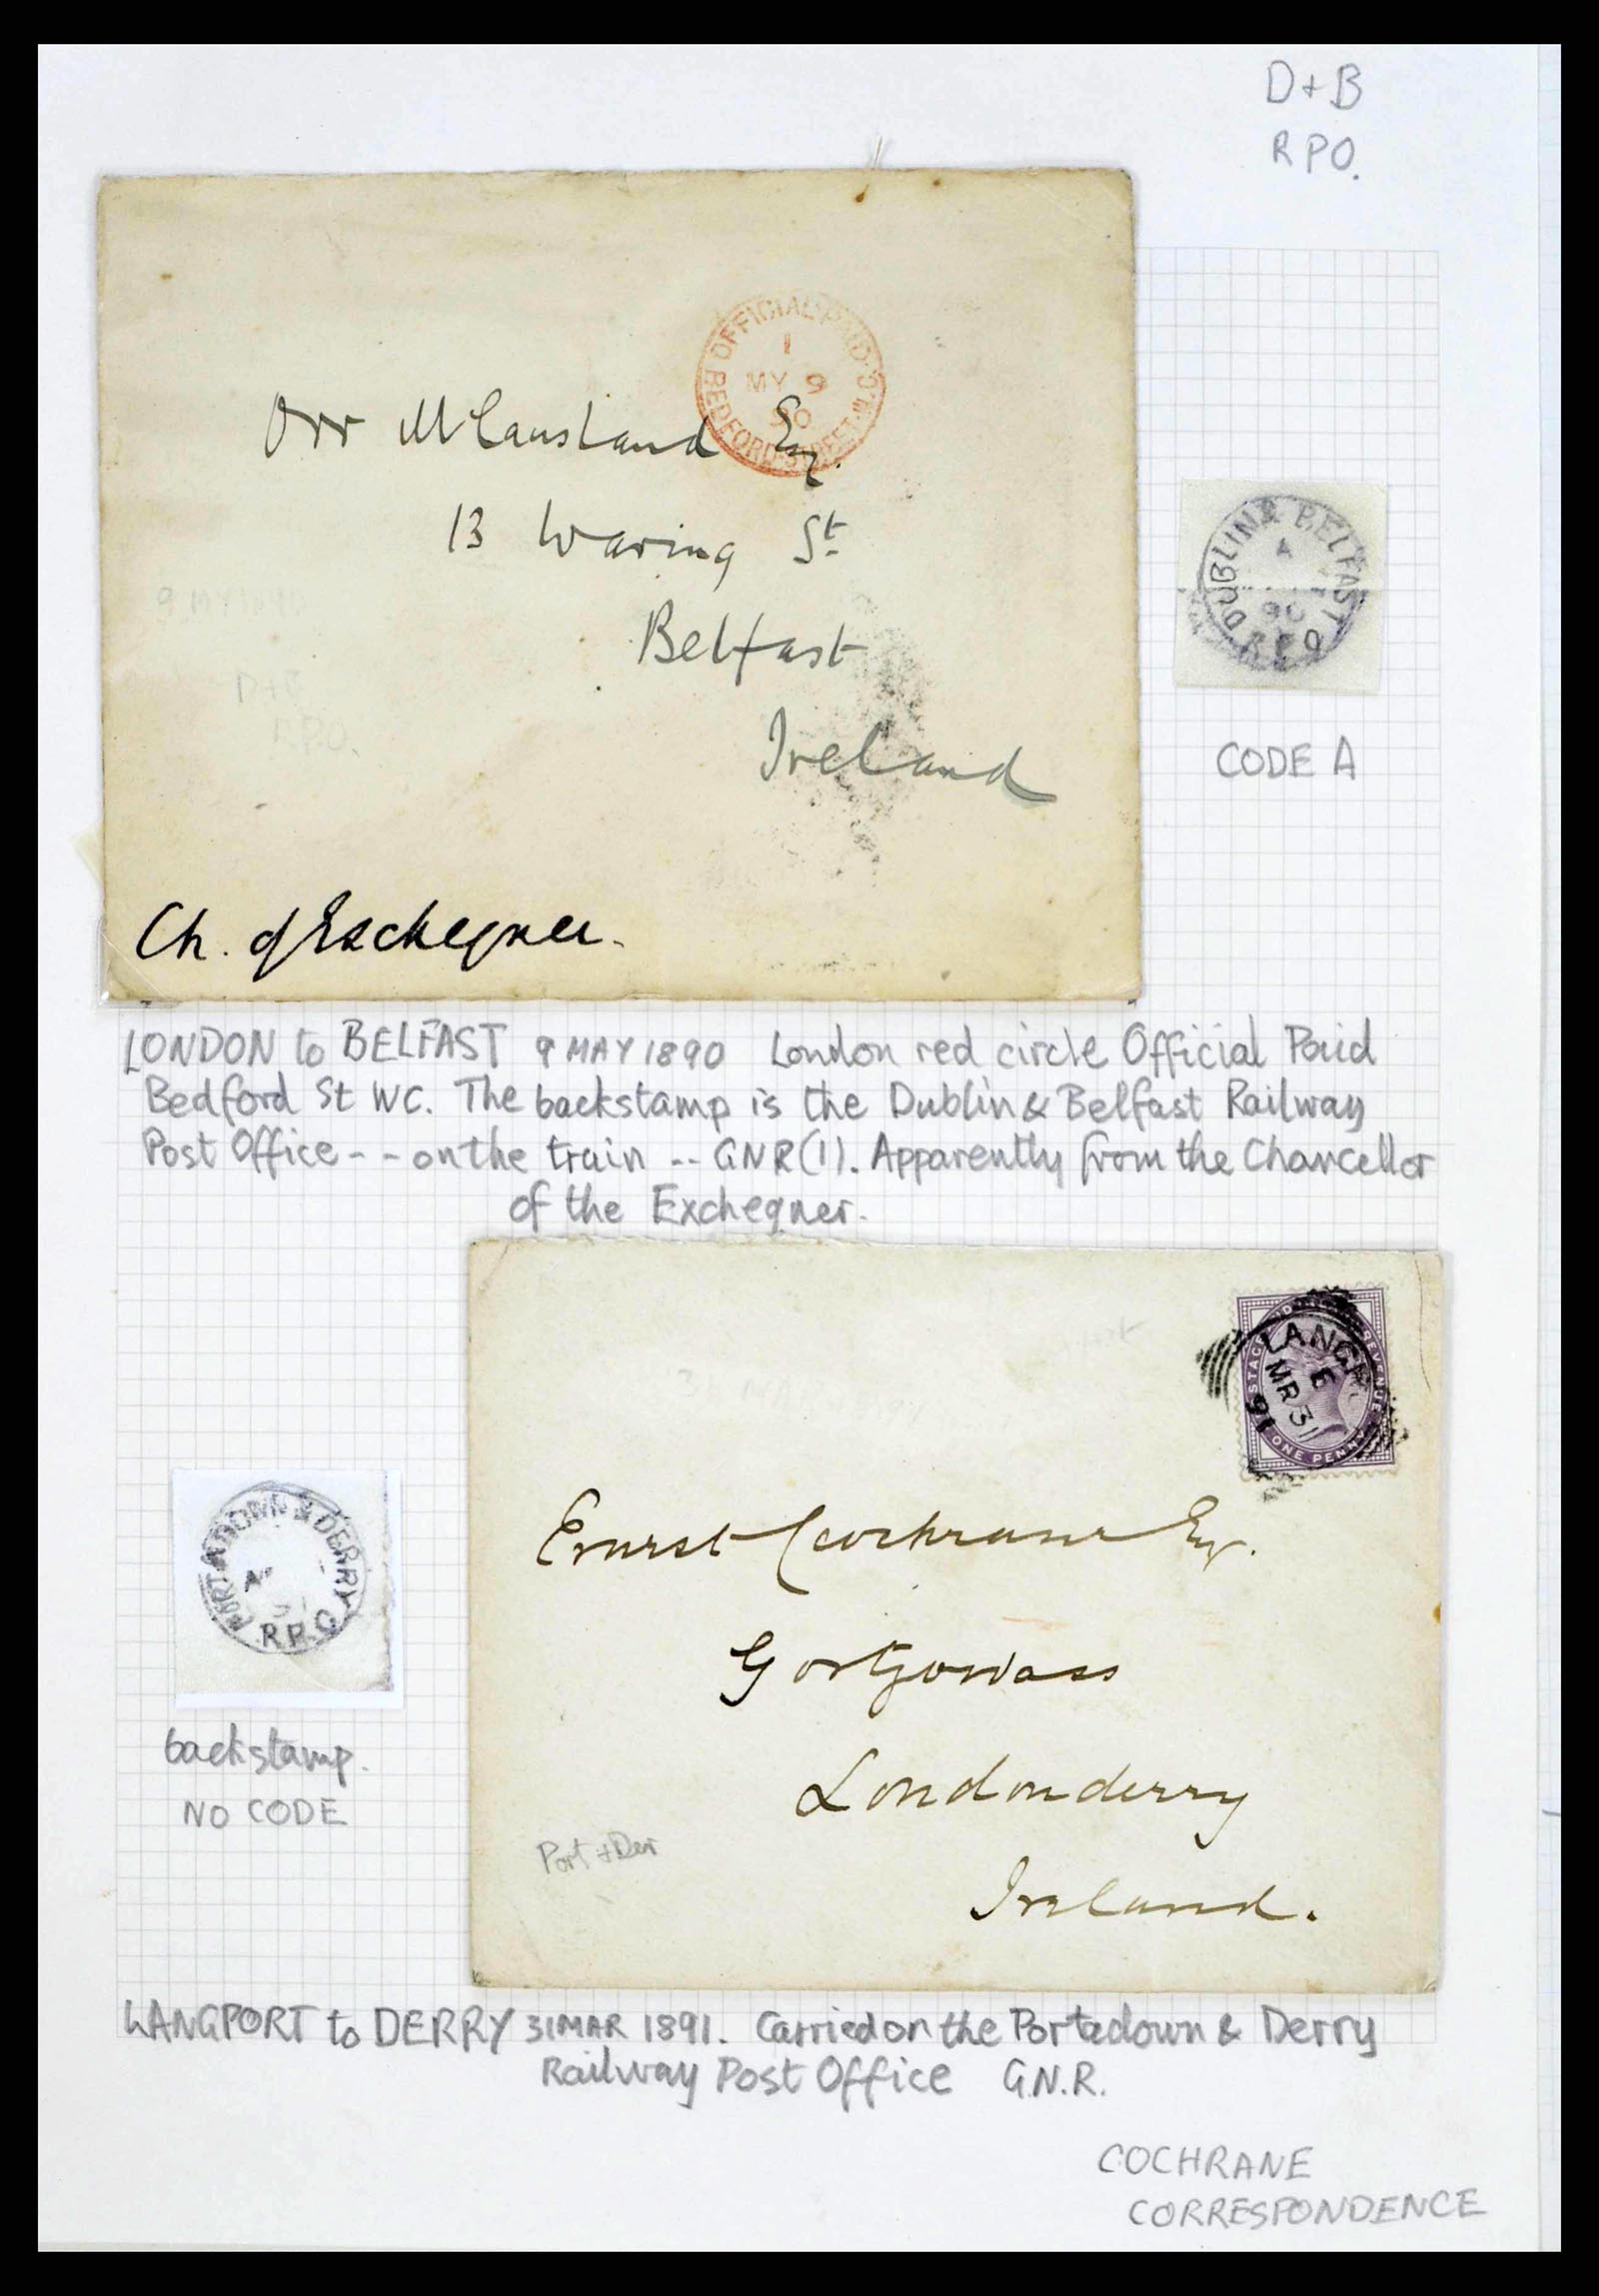 D+B
RPO.
OFFICIAL PAID
BEDFORD STREET W.C.
1
MY 9
90
Orr McCausland Esq.
13 Waring St
Belfast
Ireland
9 MY 1890
D+B
R.P.O.
Ch. of Exchequer.
DUBLIN & BELFAST
A
90
RPO
CODE A
LONDON to BELFAST 9 MAY 1890 London red circle Official Paid
Bedford St WC. The backstamp is the Dublin & Belfast Railway
Post Office -- on the train -- GNR(I). Apparently from the Chancellor
of the Exchequer.
LANGP
E
MR 31
91
ONE PENNY
PORTADOWN & DERRY
R.P.O
backstamp.
NO CODE
Ernest Cochrane Esq.
Londonderry
Ireland.
Port + Der
LANGPORT to DERRY 31 MAR 1891. Carried on the Portadown & Derry
Railway Post Office G.N.R.
COCHRANE
CORRESPONDENCE